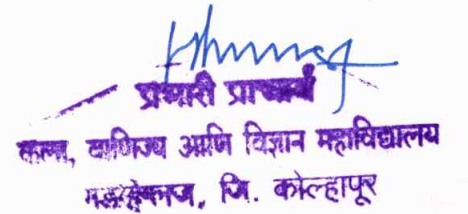 प्रभारी प्राचार्य
कला, वाणिज्य आणि विज्ञान महाविद्यालय
जि. कोल्हापूर